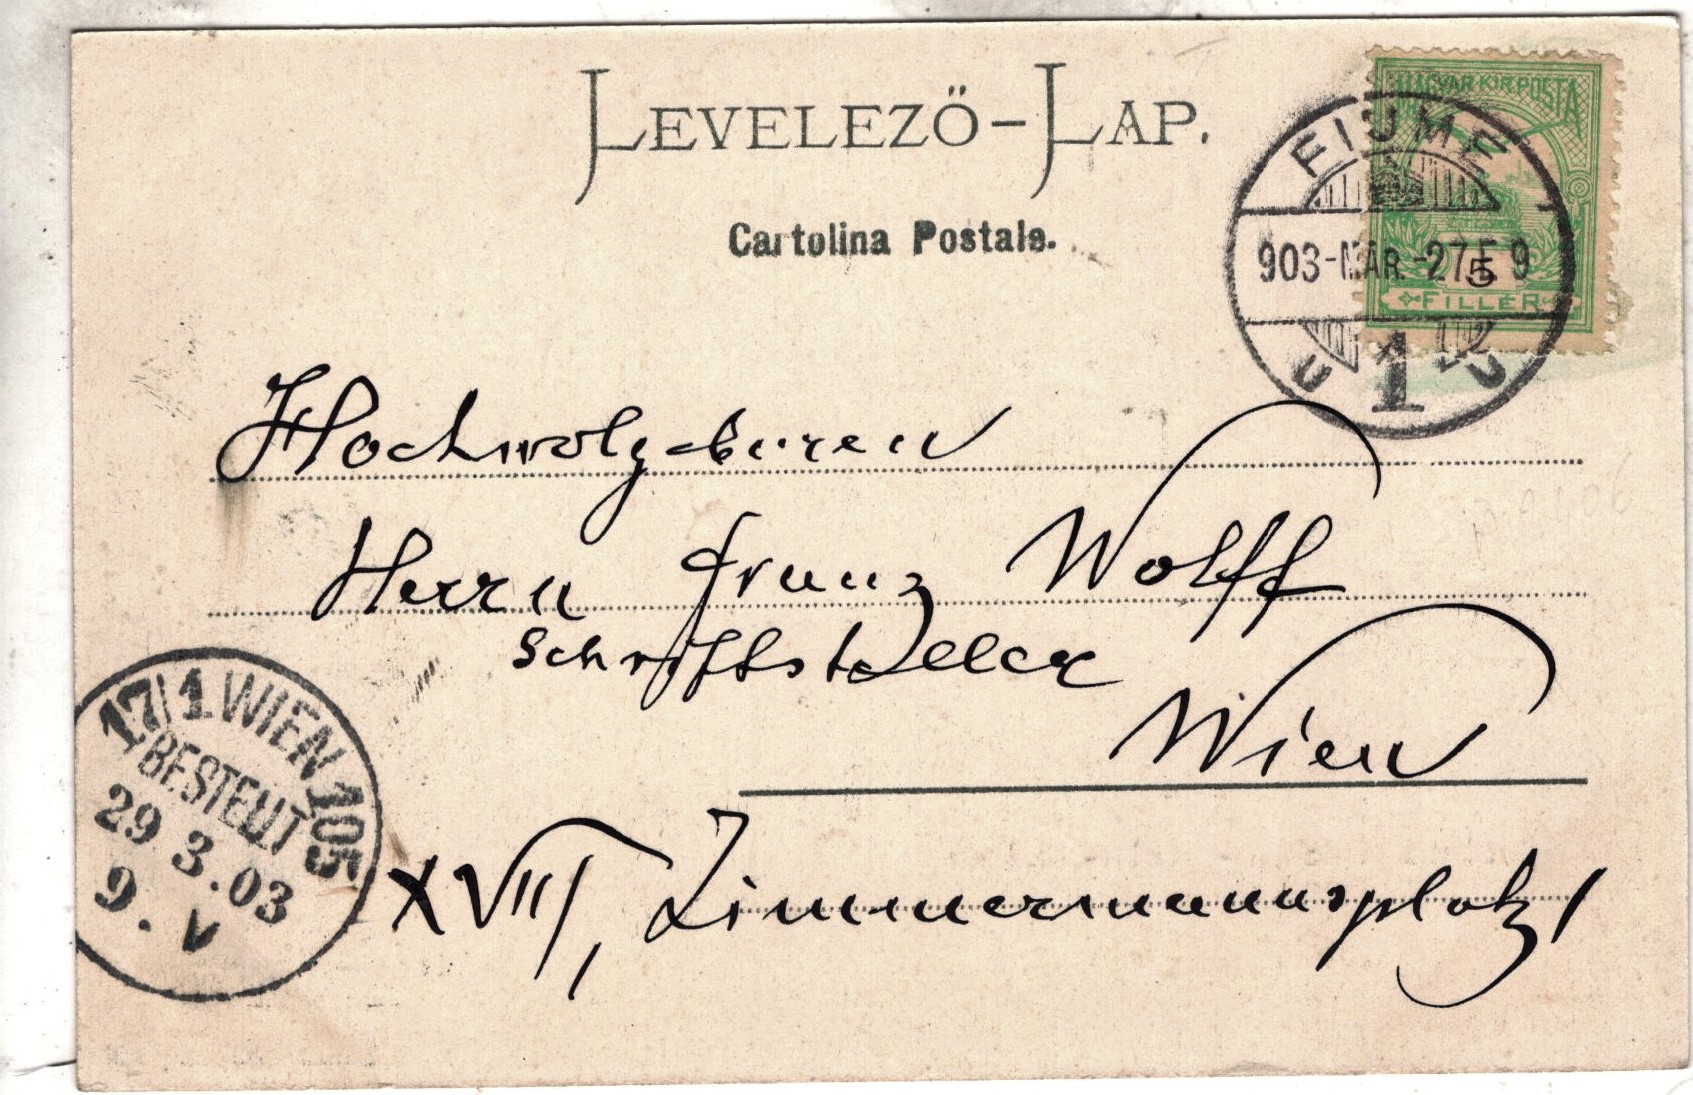 LEVELEZŐ-LAP.
Cartolina Postale.
MAGYAR KIR. POSTA
5
FILLÉR
FIUME
903-MÁR.-27 E 9
1
Hochwolgeboren
Herrn Franz Wolff
Schriftsteller
Wien
XVII, Zimmermannsplatz 1
17/1 WIEN 105
BESTELLT
29 3.03
9. V